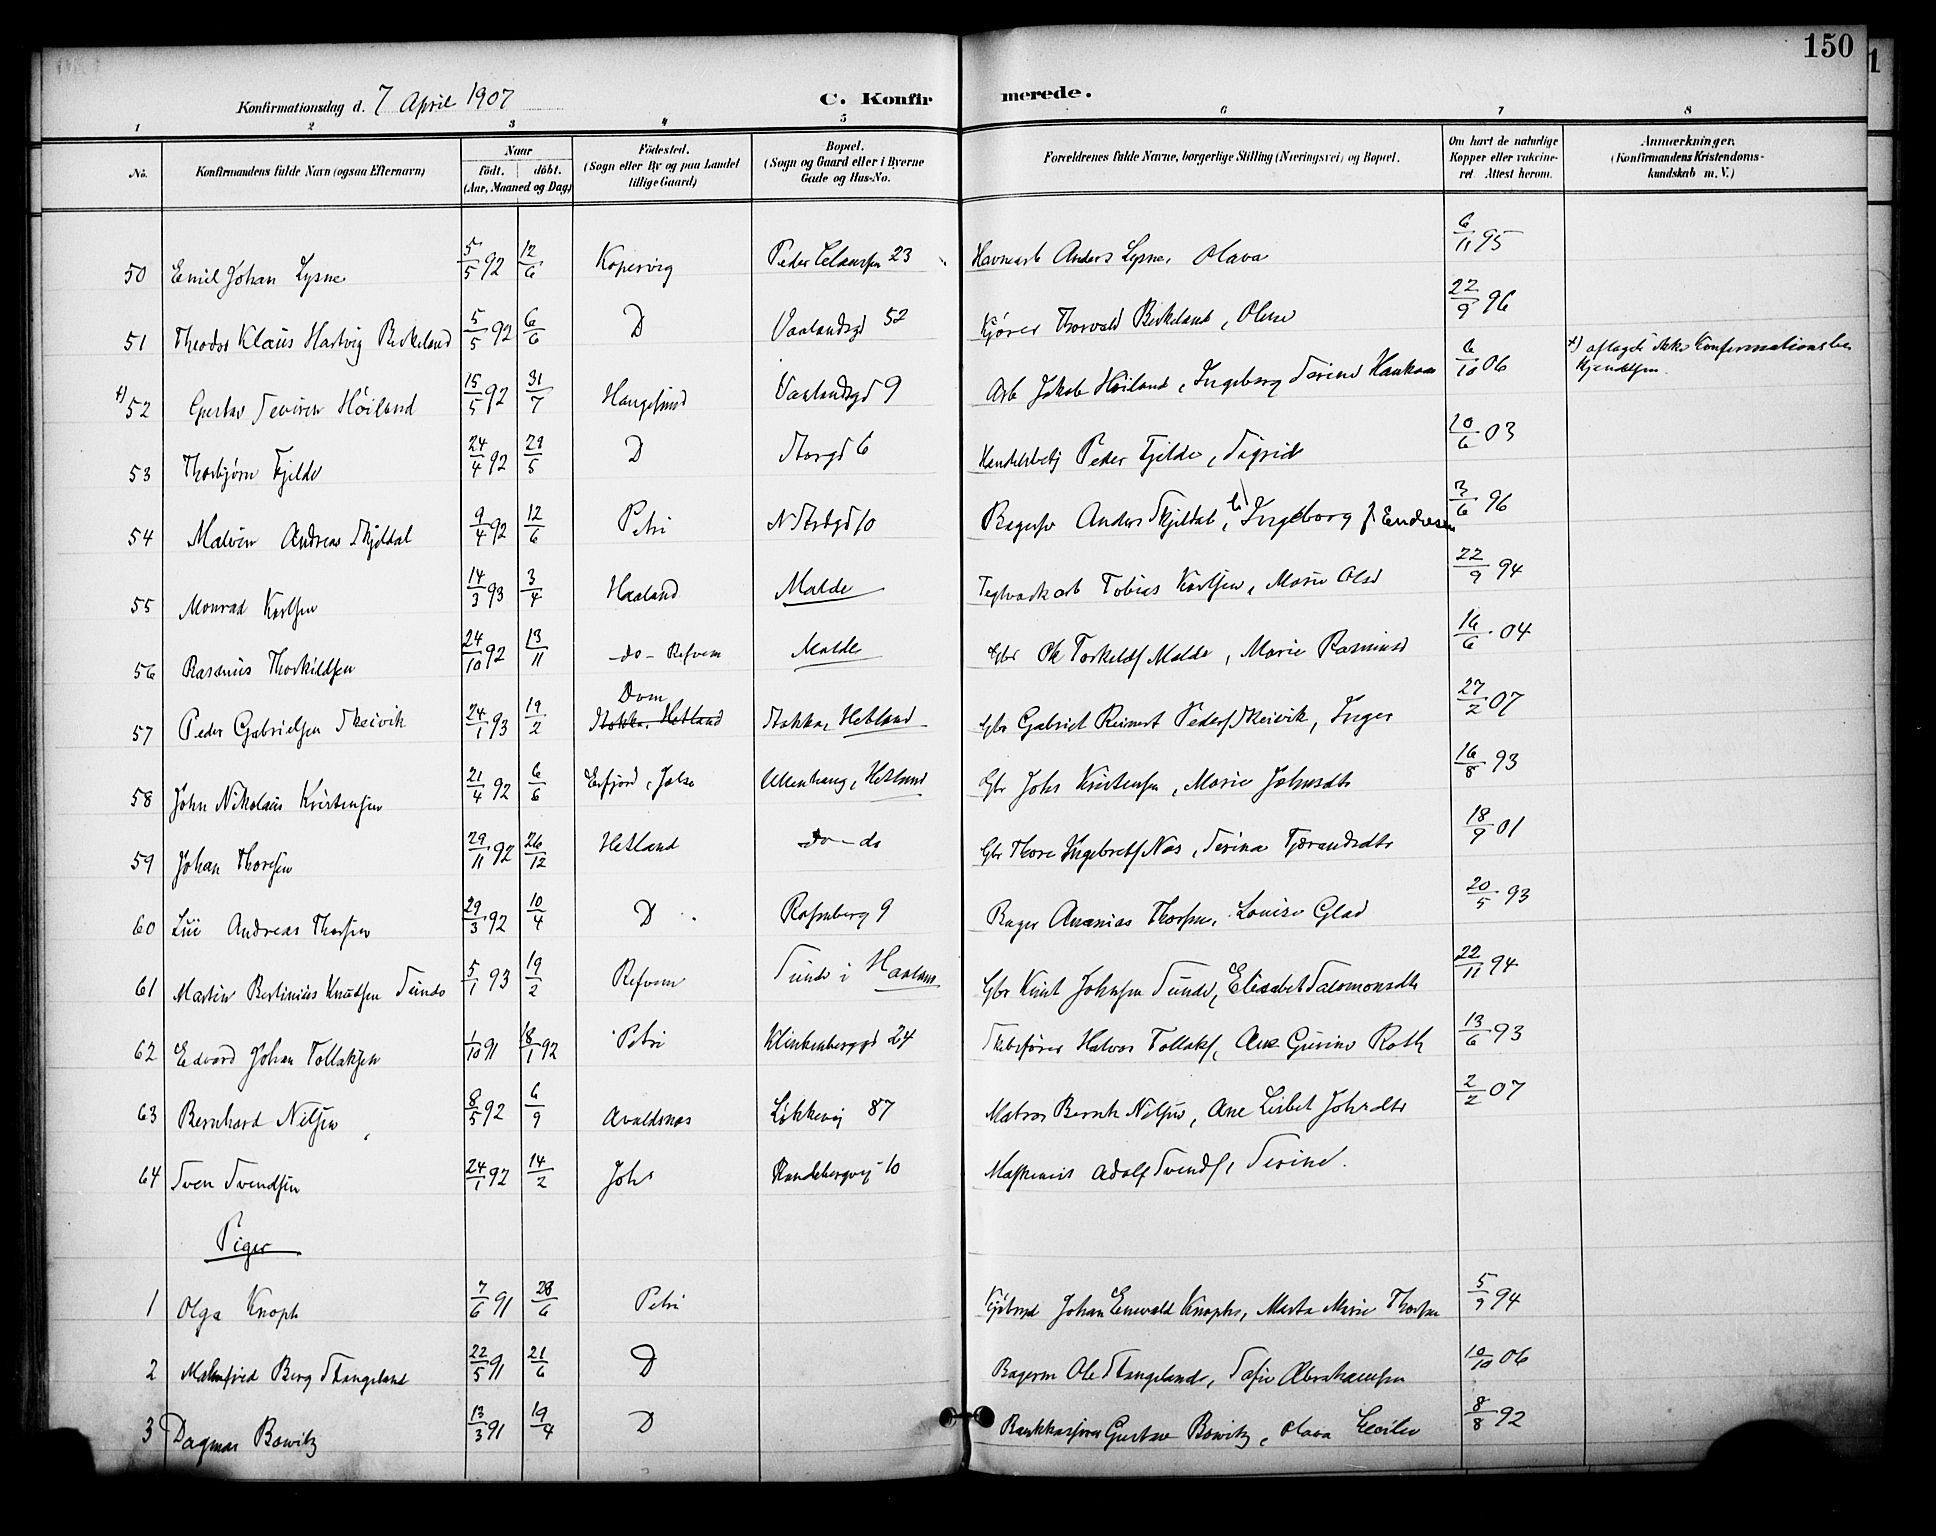 150
Konfirmationsdag d. 7 April 1907 C. Konfirmerede.
1 2 3 4 5 6 7 8
No. Konfirmandens fulde Navn (ogsaa Efternavn) Naar födt. döbt. (Aar, Maaned og Dag) Födested. (Sogn eller By og paa Landet tillige Gaard) Bopæl. (Sogn og Gaard eller i Byerne Gade og Hus-No. Forældrenes fulde Navne, borgerlige Stilling (Næringsvei) og Bopæl. Om havt de naturlige Kopper eller vaccineret. Attest herom. Anmerkninger. (Konfirmandens Kristendomskundskab m. V.)
50 Emil Johan Lysne 5/5 92 12/6 Kopervig Peder Claussgn 23 Havnearb Anders Lysne, Olava 6/11 95
51 Theodor Klaus Hartvig Birkeland 5/5 92 6/6 D Vaalandsgd 52 Kjører Thorvald Birkeland, Oline 22/9 96
+) 52 Gustav Severin Höiland 15/5 92 31/7 Haugesund Vaalandsgd 9 Arb Jakob Höiland, Ingeborg Serine Haukaas 6/10 06 +) aflagde ikke Konfirmationsbekjendelsen.
53 Thorbjørn Fjelde 24/4 92 29/5 D Storgd 6 Handelsbetj Peder Fjelde, Sigrid 10/6 03
54 Malvin Andreas Skjeldal 9/4 92 12/6 Petri N Strdgd 10 Bagersv Anders Skjeldal, Ingeborg f Endresen 3/6 96
55 Monrad Karlsen 14/3 93 3/4 Haaland Malde Teglverkarb Tobias Karlsen, Marie Olsd 22/9 94
56 Rasmus Thorkildsen 24/10 92 13/11 -do- Refvem Malde Gbr Ole Torkelds Malde, Marie Rasmusd 16/6 04
57 Peder Gabrielsen Skeivik 24/1 93 19/2 Dom Stokka, Hetland Stokka, Hetland Gbr Gabriel Reinert Peders Skeivik, Inger 27/2 07
58 John Nikolaus Kristensen 21/4 92 6/6 Erfjord, Jelse Ullenhaug, Hetland Gbr Johs Kristensen, Marie Johnsdtr 16/8 93
59 Johan Thorsen 29/11 92 26/12 Hetland do - do Gbr Thore Ingebrets Næs, Serina Tjærandsdtr 18/9 01
60 Lui Andreas Thorsen 29/3 92 10/4 D Rosenberg 9 Bager Ananias Thorsen, Louise Glad 20/5 93
61 Martin Bertinius Knudsen Sunde 5/1 93 19/2 Refvem Sunde i Haaland Gbr Knut Johnsen Sunde, Elisabet Salomonsdtr 22/11 94
62 Edvard Johan Tollaksen 1/10 91 18/1 92 Petri Klinkenberggd 24 Skibsfører Halvor Tollaks, Ane Gurine Roth 13/6 93
63 Bernhard Nilsen 8/5 92 6/9 Avaldsnæs Løkkevej 87 Matros Bernh Nilsen, Ane Lisbet Johsdtr 2/2 07
64 Sven Svendsen 24/1 92 14/2 Johs Randebergvej 10 Maskinist Adolf Svends, Serine.
Piger
1 Olga Knoph 7/6 91 28/6 Petri Johan Enevald Knophs, Marta Marie Thorsen 5/9 94
2 Malmfrid Berg Stangeland 22/5 91 21/6 D Bagerm Ole Stangeland, Sofie Abrahamsen 10/10 06
3 Dagmar Bowitz 13/3 91 19/4 D Bankkasserer Gustav Bowitz, Olava Cecilie 8/8 92